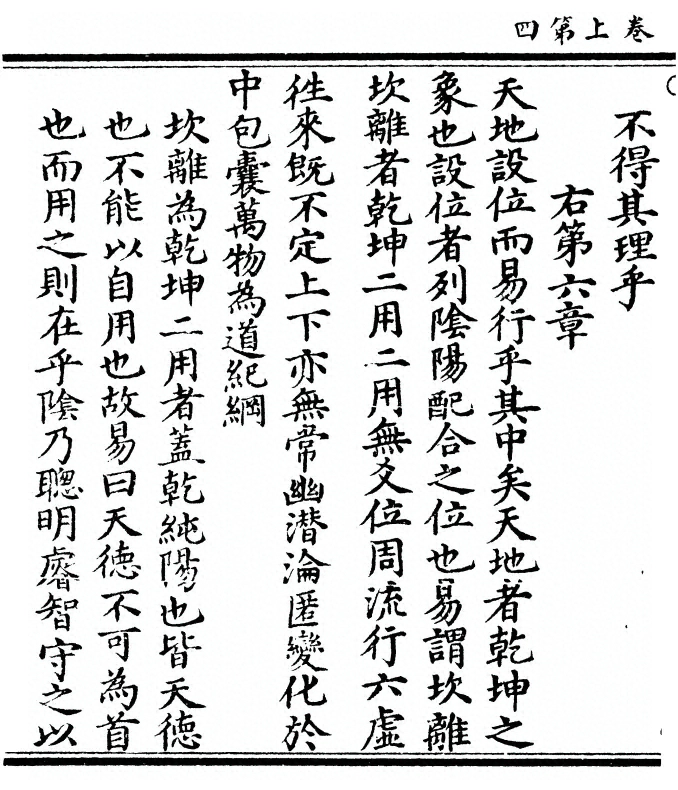 卷上第四
不得其理乎
右第六章
天地設位而易行乎其中矣天地者乾坤之
象也設位者列陰陽配合之位也易謂坎離
坎離者乾坤二用二用無爻位周流行六虛
往來既不定上下亦無常幽潛淪匿變化於
中包囊萬物為道紀綱
坎離為乾坤二用者蓋乾純陽也皆天德
也不能以自用也故易曰天德不可為首
也而用之則在乎陰乃聰明睿智守之以